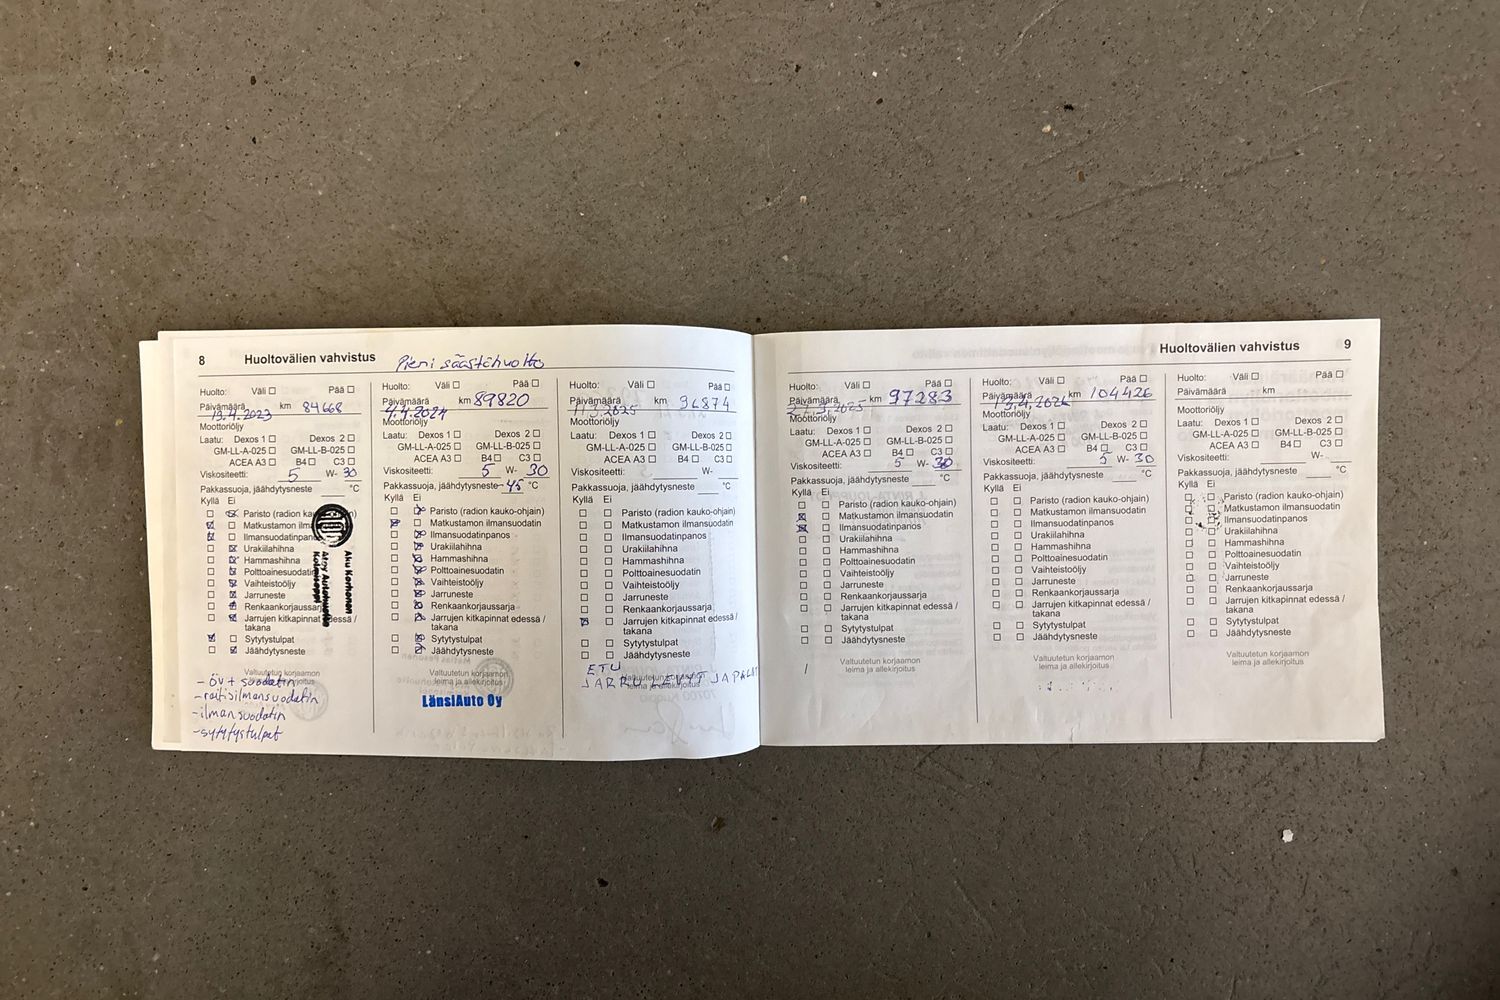 8 Huoltovälien vahvistus Pieni säästöhuolto
Huolto: Väli ☐ Pää ☐
Päivämäärä km 84668
13.4.2023
Moottoriöljy
Laatu: Dexos 1 ☐ Dexos 2 ☐
GM-LL-A-025 ☐ GM-LL-B-025 ☐
ACEA A3 ☐ B4 ☐ C3 ☐
Viskositeetti: 5 W- 30
Pakkassuoja, jäähdytysneste °C
Kyllä Ei
Paristo (radion kauko-ohjain)
Matkustamon
Ilmansuodatinpanos
Urakiilahihna
Hammashihna
Polttoainesuodatin
Vaihteistoöljy
Jarruneste
Renkaankorjaussarja
Jarrujen kitkapinnat edessä /
takana
Sytytystulpat
Jäähdytysneste
Aku Korhonen
Valtuutetun korjaamon
leima ja allekirjoitus
- öv + suodatin
- raitisilmansuodatin
- ilmansuodatin
- sytytystulpat
Huolto: Väli ☐ Pää ☐
Päivämäärä km 89820
4.4.2024
Moottoriöljy
Laatu: Dexos 1 ☐ Dexos 2 ☐
GM-LL-A-025 ☐ GM-LL-B-025 ☐
ACEA A3 ☐ B4 ☐ C3 ☐
Viskositeetti: 5 W- 30
Pakkassuoja, jäähdytysneste -45 °C
Kyllä Ei
Paristo (radion kauko-ohjain)
Matkustamon ilmansuodatin
Ilmansuodatinpanos
Urakiilahihna
Hammashihna
Polttoainesuodatin
Vaihteistoöljy
Jarruneste
Renkaankorjaussarja
Jarrujen kitkapinnat edessä /
takana
Sytytystulpat
Jäähdytysneste
Valtuutetun korjaamon
leima ja allekirjoitus
LänsiAuto Oy
Huolto: Väli ☐ Pää ☐
Päivämäärä km 96874
11.3.2025
Moottoriöljy
Laatu: Dexos 1 ☐ Dexos 2 ☐
GM-LL-A-025 ☐ GM-LL-B-025 ☐
ACEA A3 ☐ B4 ☐ C3 ☐
Viskositeetti: W-
Pakkassuoja, jäähdytysneste °C
Kyllä Ei
Paristo (radion kauko-ohjain)
Matkustamon ilmansuodatin
Ilmansuodatinpanos
Urakiilahihna
Hammashihna
Polttoainesuodatin
Vaihteistoöljy
Jarruneste
Renkaankorjaussarja
Jarrujen kitkapinnat edessä /
takana
Sytytystulpat
Jäähdytysneste
ETU
Valtuutetun korjaamon
JARRULEVYT JA
leima ja allekirjoitus
Huoltovälien vahvistus 9
Huolto: Väli ☐ Pää ☐
Päivämäärä km 97283
Moottoriöljy
Laatu: Dexos 1 ☐ Dexos 2 ☐
GM-LL-A-025 ☐ GM-LL-B-025 ☐
ACEA A3 ☐ B4 ☐ C3 ☐
Viskositeetti: 5 W- 30
Pakkassuoja, jäähdytysneste °C
Kyllä Ei
Paristo (radion kauko-ohjain)
Matkustamon ilmansuodatin
Ilmansuodatinpanos
Urakiilahihna
Hammashihna
Polttoainesuodatin
Vaihteistoöljy
Jarruneste
Renkaankorjaussarja
Jarrujen kitkapinnat edessä /
takana
Sytytystulpat
Jäähdytysneste
Valtuutetun korjaamon
leima ja allekirjoitus
Huolto: Väli ☐ Pää ☐
Päivämäärä km 104426
Moottoriöljy
Laatu: Dexos 1 ☐ Dexos 2 ☐
GM-LL-A-025 ☐ GM-LL-B-025 ☐
ACEA A3 ☐ B4 ☐ C3 ☐
Viskositeetti: 5 W- 30
Pakkassuoja, jäähdytysneste °C
Kyllä Ei
Paristo (radion kauko-ohjain)
Matkustamon ilmansuodatin
Ilmansuodatinpanos
Urakiilahihna
Hammashihna
Polttoainesuodatin
Vaihteistoöljy
Jarruneste
Renkaankorjaussarja
Jarrujen kitkapinnat edessä /
takana
Sytytystulpat
Jäähdytysneste
Valtuutetun korjaamon
leima ja allekirjoitus
Huolto: Väli ☐ Pää ☐
Päivämäärä km
Moottoriöljy
Laatu: Dexos 1 ☐ Dexos 2 ☐
GM-LL-A-025 ☐ GM-LL-B-025 ☐
ACEA A3 ☐ B4 ☐ C3 ☐
Viskositeetti: W-
Pakkassuoja, jäähdytysneste °C
Kyllä Ei
Paristo (radion kauko-ohjain)
Matkustamon ilmansuodatin
Ilmansuodatinpanos
Urakiilahihna
Hammashihna
Polttoainesuodatin
Vaihteistoöljy
Jarruneste
Renkaankorjaussarja
Jarrujen kitkapinnat edessä /
takana
Sytytystulpat
Jäähdytysneste
Valtuutetun korjaamon
leima ja allekirjoitus